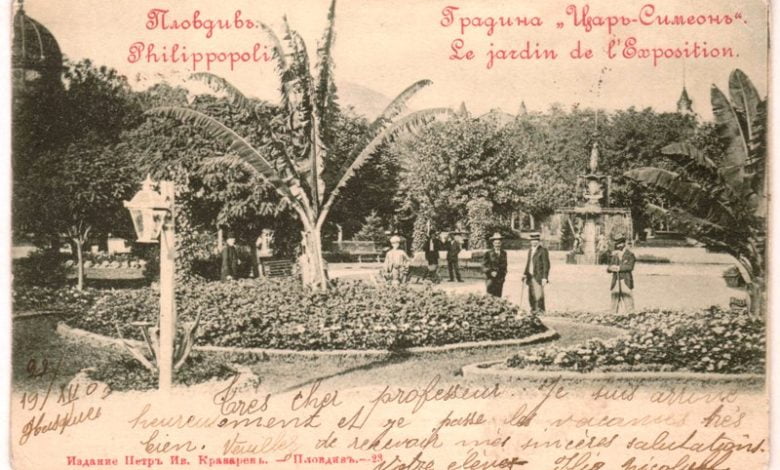 Пловдивъ. Градина „Царь-Симеонъ“.
Philippopoli Le jardin de l'Exposition.
19/XII 0
Très cher professeur. Je suis arrivé
heureusement et je passe les vacances très
bien. Veuillez de recevoir mes sincères salutations.
Votre élève
Издание Петръ Ив. Краваревъ. —Пловдивъ.—23.